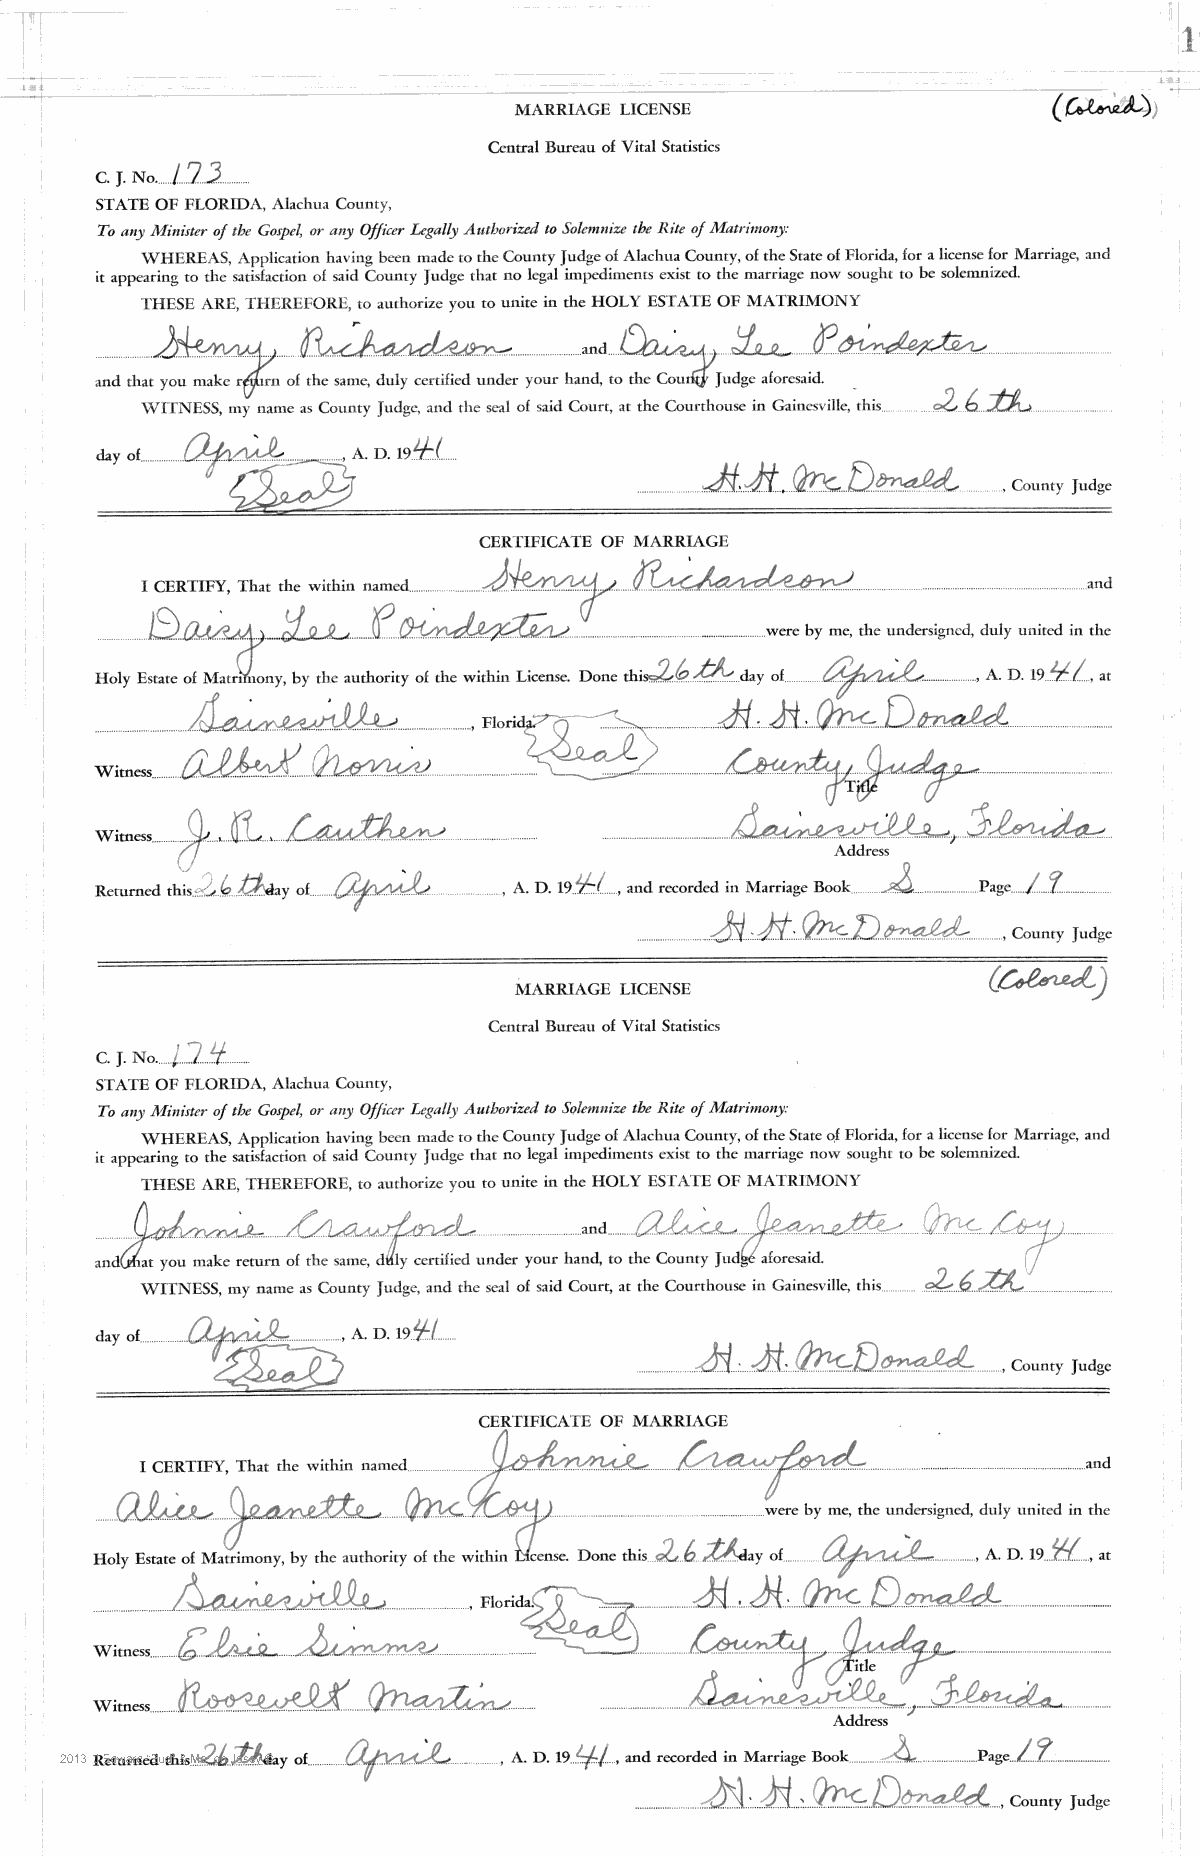 1
MARRIAGE LICENSE (Colored)
Central Bureau of Vital Statistics
C. J. No. 173
STATE OF FLORIDA, Alachua County,
To any Minister of the Gospel, or any Officer Legally Authorized to Solemnize the Rite of Matrimony:
WHEREAS, Application having been made to the County Judge of Alachua County, of the State of Florida, for a license for Marriage, and
it appearing to the satisfaction of said County Judge that no legal impediments exist to the marriage now sought to be solemnized.
THESE ARE, THEREFORE, to authorize you to unite in the HOLY ESTATE OF MATRIMONY
Henry Richardson and Daisy Lee Poindexter
and that you make return of the same, duly certified under your hand, to the County Judge aforesaid.
WITNESS, my name as County Judge, and the seal of said Court, at the Courthouse in Gainesville, this 26th
day of April, A. D. 1941
Seal H. H. McDonald, County Judge
CERTIFICATE OF MARRIAGE
I CERTIFY, That the within named Henry Richardson and
Daisy Lee Poindexter were by me, the undersigned, duly united in the
Holy Estate of Matrimony, by the authority of the within License. Done this 26th day of April, A. D. 1941, at
Gainesville, Florida. Seal H. H. McDonald
Witness Albert Norris County Judge
Title
Witness J. R. Cauthen Gainesville, Florida
Address
Returned this 26th day of April, A. D. 1941, and recorded in Marriage Book S Page 19
H. H. McDonald, County Judge
MARRIAGE LICENSE (Colored)
Central Bureau of Vital Statistics
C. J. No. 174
STATE OF FLORIDA, Alachua County,
To any Minister of the Gospel, or any Officer Legally Authorized to Solemnize the Rite of Matrimony:
WHEREAS, Application having been made to the County Judge of Alachua County, of the State of Florida, for a license for Marriage, and
it appearing to the satisfaction of said County Judge that no legal impediments exist to the marriage now sought to be solemnized.
THESE ARE, THEREFORE, to authorize you to unite in the HOLY ESTATE OF MATRIMONY
Johnnie Crawford and Alice Jeanette McCoy
and that you make return of the same, duly certified under your hand, to the County Judge aforesaid.
WITNESS, my name as County Judge, and the seal of said Court, at the Courthouse in Gainesville, this 26th
day of April, A. D. 1941
Seal H. H. McDonald, County Judge
CERTIFICATE OF MARRIAGE
I CERTIFY, That the within named Johnnie Crawford and
Alice Jeanette McCoy were by me, the undersigned, duly united in the
Holy Estate of Matrimony, by the authority of the within License. Done this 26th day of April, A. D. 1941, at
Gainesville, Florida. Seal H. H. McDonald
Witness Elsie Simms County Judge
Title
Witness Roosevelt Martin Gainesville, Florida
Address
2013 Returned this 26th day of April, A. D. 1941, and recorded in Marriage Book S Page 19
H. H. McDonald, County Judge